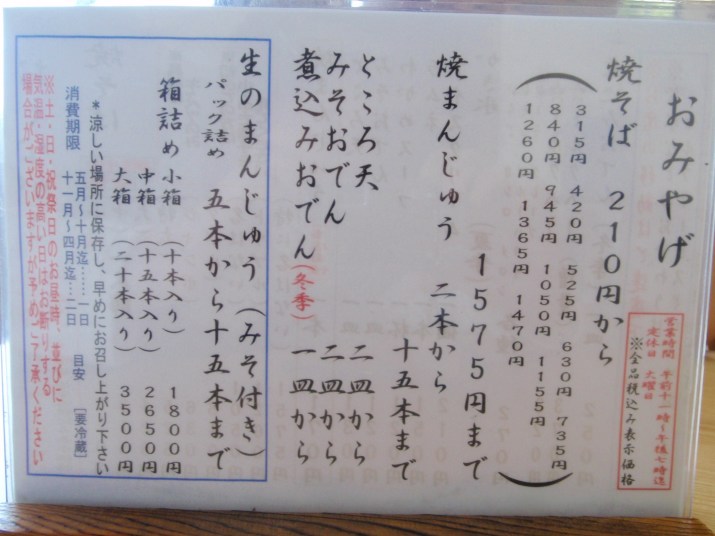 おみやげ
営業時間 午前十一時〜午後七時迄
定休日 火曜日
※全品税込み表示価格
焼そば 210円から
(315円 420円 525円 630円 735円
840円 945円 1050円 1155円
1260円 1365円 1470円)
1575円まで
焼まんじゅう 二本から
十五本まで
ところ天 二皿から
みそおでん 二皿から
煮込みおでん(冬季) 一皿から
生のまんじゅう(みそ付き)
パック詰め 五本から十五本まで
箱詰め 小箱 (十本入り) 1800円
中箱 (十五本入り) 2650円
大箱 (二十本入り) 3500円
*涼しい場所に保存し、早めにお召し上がり下さい
消費期限 五月〜十月迄……一日 目安 [要冷蔵]
十一月〜四月迄…二日
※土・日・祝祭日のお昼時、並びに
気温・湿度の高い日はお断りする
場合がございますが予めご了承ください